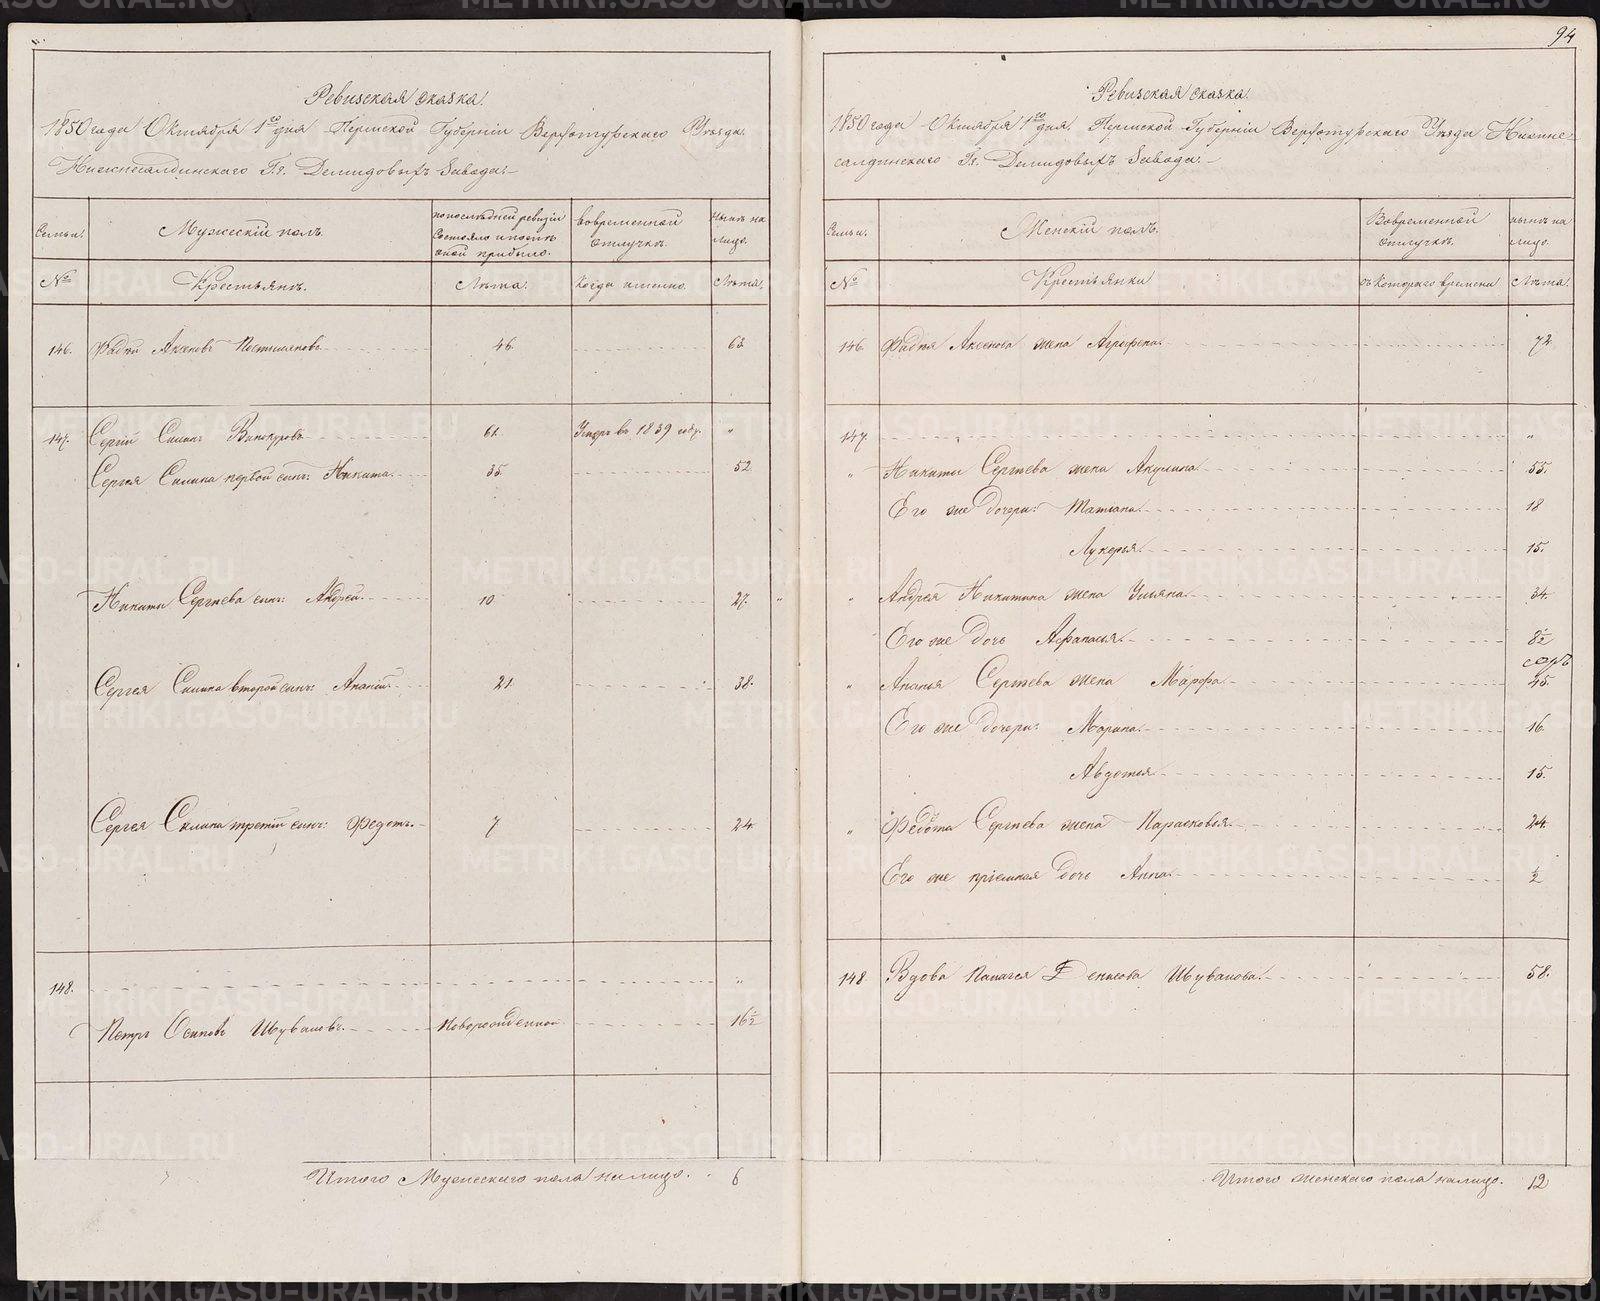 94
Ревизская сказка.
1850 года Октября 1го дня Пермской Губерніи Верхотурскаго Уѣзда.
Нижнесалдинскаго Гг. Демидовыхъ Завода:
Семьи. Мужескій полъ. по послѣдней ревизіи вовременной нынѣ на
состояло и послѣ отлучкѣ. лицо.
оной прибыло.
№ Крестьянъ. Лѣта. Когда именно. Лѣта.
146. Фадѣй Аксеновъ Постыляковъ 46. 63
147. Сергій Силинъ Винокуровъ 61. Умеръ въ 1839 году. "
Сергея Силина первой сынъ: Никита 35. 52
Никиты Сергѣева сынъ: Андрей 10 27.
Сергея Силина второй сынъ: Ананій 21. 38.
Сергея Силина третій сынъ: Федотъ. 7 24.
148. "
Петръ Осиповъ Шувановъ. Новорожденной 16½
Итого Мужескаго пола налицо. 6
Ревизская сказка.
1850 года Октября 1го дня. Пермской Губерніи Верхотурскаго Уѣзда Нижне-
салдинскаго Гг. Демидовыхъ Завода.
Семьи. Женскій полъ. Вовременной нынѣ на
отлучкѣ. лицо.
№ Крестьянки съ котораго времени Лѣта.
146. Фадѣя Аксенова жена Агрофена 72
147. "
" Никиты Сергѣева жена Акулина 55.
Его же дочери: Татіана 18
Лукерья 15.
" Андрея Никитина жена Ульяна 34.
Его же дочь Афанасья 8½
" Ананья Сергѣева жена Марфа 45.
Его же дочери: Марина 16.
Авдотья 15.
" Федота Сергѣева жена Парасковья 24.
Его же пріемная дочь Анна ½
148 Вдова Палагея Денисова Шуванова. 58.
Итого женскаго пола налицо. 12
METRIKI.GASO-URAL.RU